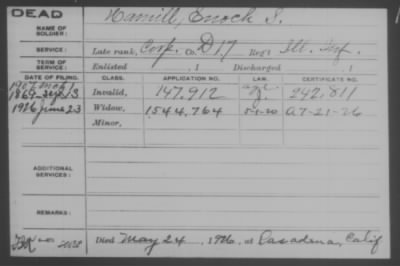 DEAD
NAME OF SOLDIER: Hamill, Enoch S.
SERVICE: Late rank, Corp. Co. D 17 Reg't Ill. Inf.
TERM OF SERVICE: Enlisted , 1 Discharged , 1
DATE OF FILING. CLASS. APPLICATION NO. LAW. CERTIFICATE NO.
1907
1869 Sep 13 Invalid, 147,912 242,811
1926 June 23 Widow, 1544,764 5-1-20 A-7-21-26
Minor,
ADDITIONAL SERVICES:
REMARKS:
Died May 24, 1926, at Pasadena, Calif